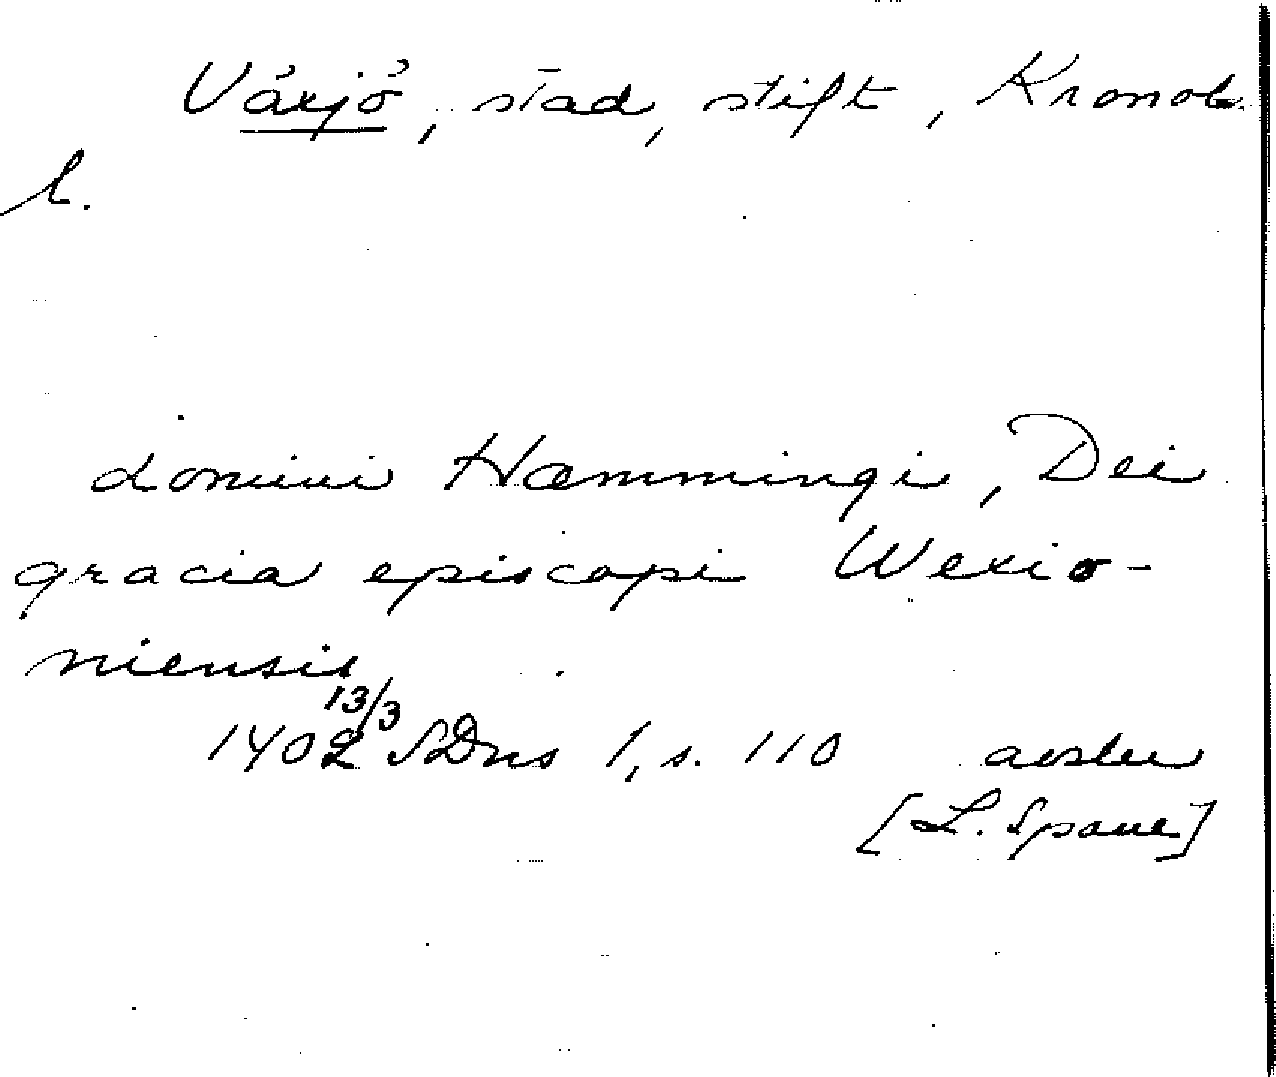 Växjö, stad, stift, Kronob.
l.
domini Hæmmingi, Dei
gracia episcopi Wexio-
niensis
13/3
1402 SDns 1, s. 110
[L. Spaue]